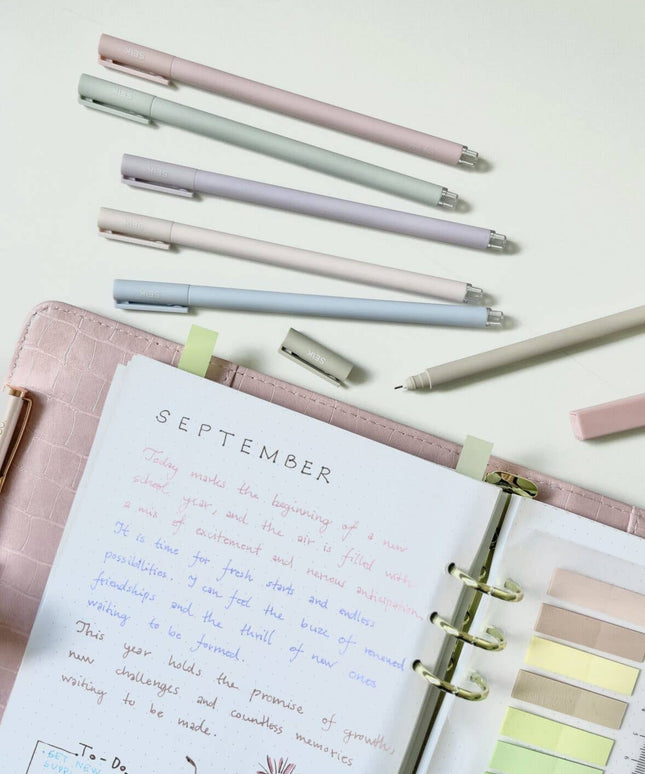 SEPTEMBER
Today marks the beginning of a new
school year, and the air is filled with
a mix of excitement and nervous anticipation.
It is time for fresh starts and endless
possibilities. I can feel the buzz of renewed
friendships and the thrill of new ones
waiting to be formed.
This year holds the promise of growth,
new challenges and countless memories
waiting to be made.
To-Do
GET NEW